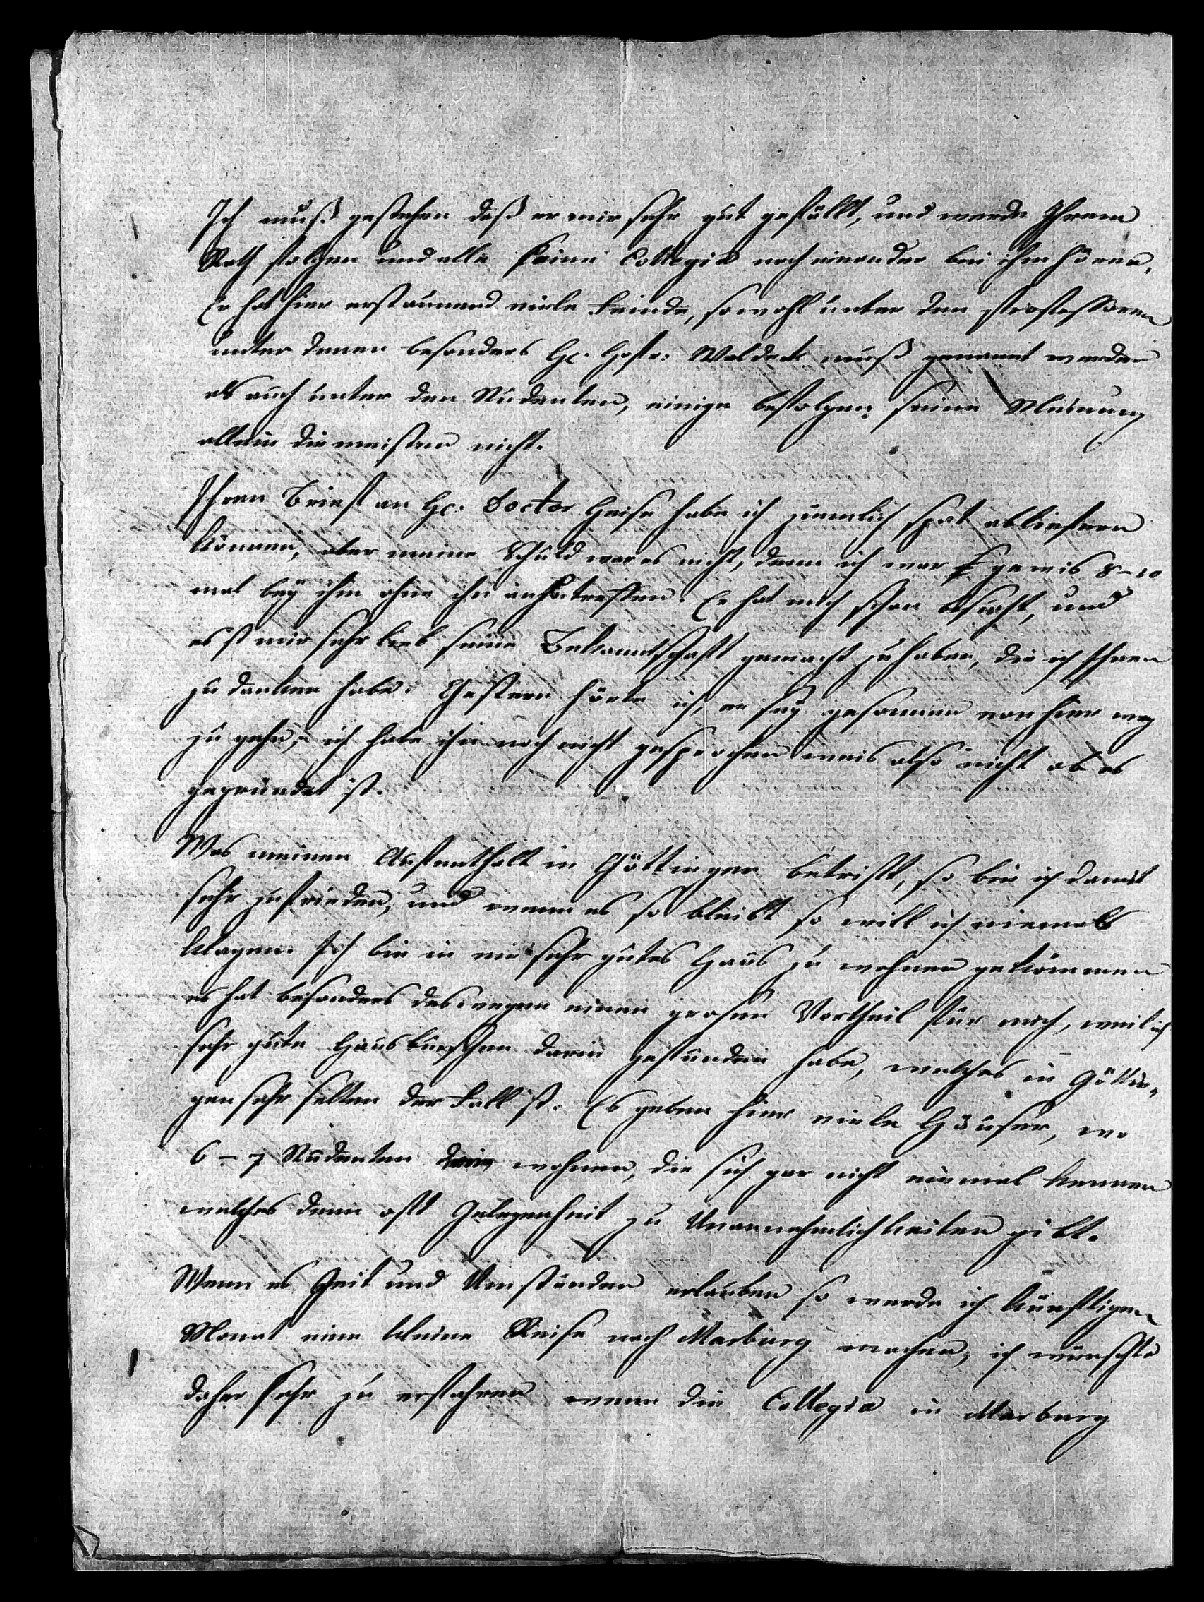 Ich muß gestehen daß er mir sehr gut gefällt, und werde Ihrem
Rath folgen und alle seine Collegia nach einander bei ihm hören.
Er hat hier erstaunend viele Feinde, sowohl unter den Professoren
unter denen besonders H. Hofr: Waldeck muß genannt werden
als auch unter den Studenten, einige befolgen seine Meinung
allein die meisten nicht.
Ihren Brief an H. Doctor Heise habe ich ziemlich spät abliefern
können, aber meine Schuld war es nicht, denn ich war gewis 8–10
mal bey ihm ohne ihn anzutreffen. Er hat mich schon besucht, und
es ist mir sehr lieb seine Bekanntschaft gemacht zu haben, die ich Ihnen
zu danken habe. Gestern hörte ich er sey gesonnen von hier weg
zu gehn, ich habe ihn noch nicht gesprochen weis also nicht ob es
gegründet ist.
Was meinen Aufenthalt in Göttingen betrifft, so bin ich damit
sehr zufrieden, und wenn es so bleibt so will ich niemals
klagen. Ich bin in ein sehr gutes Haus zu wohnen gekommen
es hat besonders deswegen einen grosen Vortheil für mich, weil ich
sehr gute Hausburschen darin gefunden habe, welches in Göttin-
gen sehr selten der Fall ist. Es geben hier viele Häuser, wo
6–7 Studenten wohnen, die sich gar nicht einmal kennen
welches denn oft Gelegenheit zu Unannehmlichkeiten gibt.
Wenn es Zeit und Umständen erlauben so werde ich künftigen
Monat eine kleine Reise nach Marburg machen, ich wünschte
daher sehr zu erfahren wenn die Collegia in Marburg